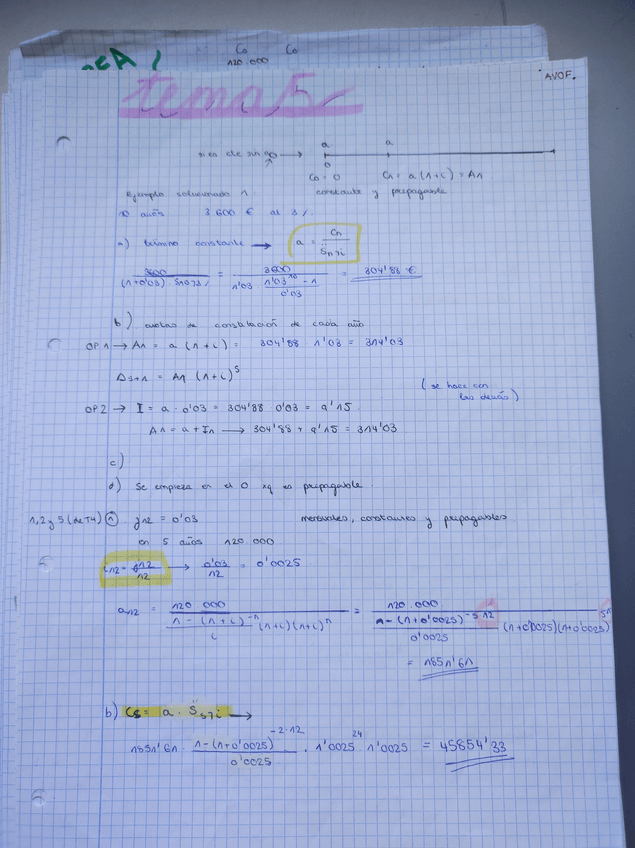 Co Co
120.000
AVOF.
tema 5
a a
0
Co = 0 Cn = a (1+i) = A1
Ejemplo solucionado 1 constante y prepagable
10 años 3.600 € al 3%
a) término constante → a = Cn / S̈n⌉i
3600 / (1+0'03) · S10⌉3% = 3600 / 1'03 · (1'03^10 - 1 / 0'03) = 304'88 €
b) cuotas de constitución de cada año
OP 1 → A1 = a (1+i) = 304'88 · 1'03 = 314'03
As+1 = A1 (1+i)^s
(se hace con las demás)
OP 2 → I = a · 0'03 = 304'88 · 0'03 = 9'15
A1 = a + I1 → 304'88 + 9'15 = 314'03
c)
d) Se empieza en el 0 xq es prepagable
1, 2 y 5 (de T4) ① j12 = 0'03 mensuales, constantes y prepagables
en 5 años 120.000
i12 = j12 / 12 → 0'03 / 12 = 0'0025
a12 = 120.000 / (1 - (1+i)^-n / i) (1+i) (1+i)^n = 120.000 / (1 - (1+0'0025)^-5·12 / 0'0025) (1+0'0025) (1+0'0025)^5·1
= 1851'61
b) Cs = a · S̈s⌉i →
1851'61 · (1 - (1+0'0025)^-2·12 / 0'0025) · 1'0025^24 · 1'0025 = 45854'33